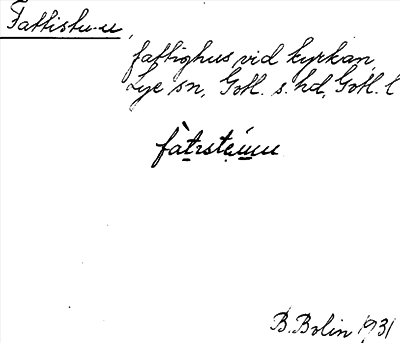 Fattistu-u,
fattighus vid kyrkan,
Lye sn, Gotl. s. hd, Gotl. l
B. Bolin 1931